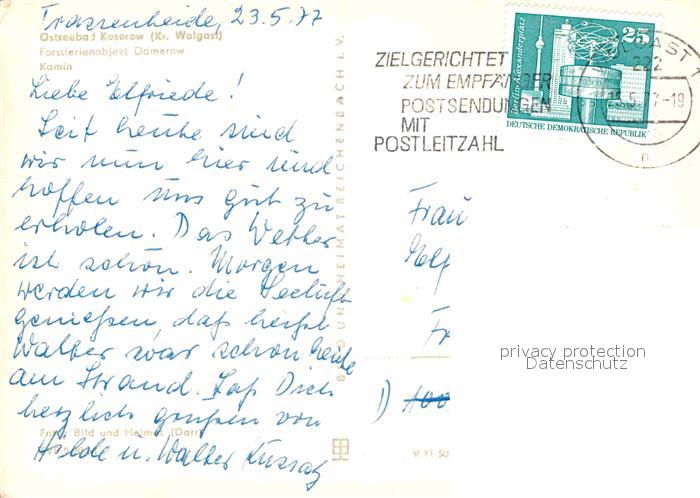 Trassenheide, 23.5.77
Ostseebad Koserow (Kr. Wolgast)
Forstferienobjekt Damerow
Kamin
Liebe Elfriede!
Seit heute sind
wir nun hier und
hoffen uns gut zu
erholen. Das Wetter
ist schön. Morgen
werden wir die Seeluft
genießen, daß heißt
Walter war schon heute
am Strand. Laß Dich
herzlich grüßen von
Hilde u. Walter
Foto: Bild und Heimat (Darr)
BILD UND HEIMAT REICHENBACH i. V.
ZIELGERICHTET
ZUM EMPFÄNGER
POSTSENDUNGEN
MIT
POSTLEITZAHL
25
Berlin-Alexanderplatz
DEUTSCHE DEMOKRATISCHE REPUBLIK
WOLGAST
222
23.5.77-19
n
Frau
Elf
Fr
privacy protection
Datenschutz
V 11 50